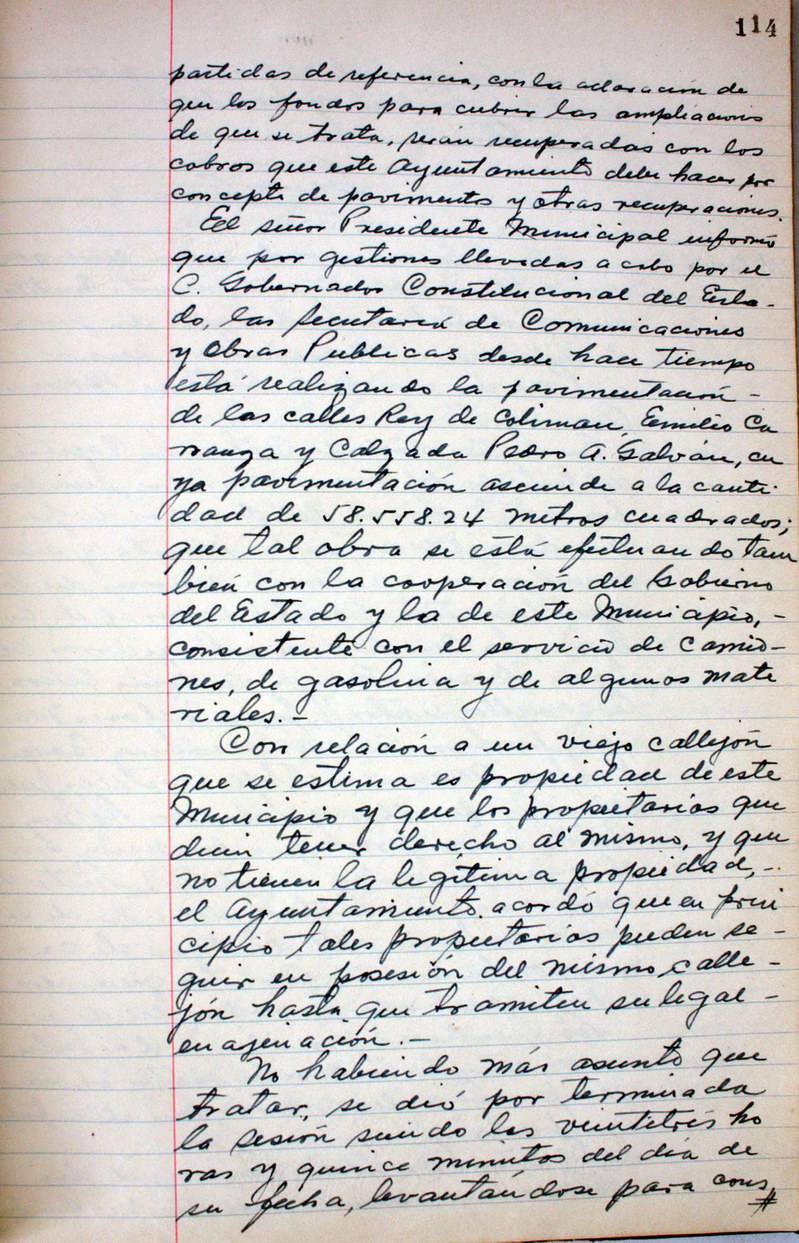 114
partidas de referencia, con la aclaración de
que los fondos para cubrir las ampliaciones
de que se trata, serán recuperadas con los
cobros que este Ayuntamiento debe hacer por
concepto de pavimentos y otras recuperaciones.
El señor Presidente Municipal informó
que por gestiones llevadas a cabo por el
C. Gobernador Constitucional del Esta-
do, las Secretaría de Comunicaciones
y Obras Publicas desde hace tiempo
está realizando la pavimentación -
de las calles Rey de Coliman, Emilio Ca
rranza y Calzada Pedro A. Galván, cu
ya pavimentación asciende a la canti-
dad de 58.558.24 metros cuadrados;
que tal obra se está efectuando tam
bién con la cooperación del Gobierno
del Estado y la de este Municipio, -
consistente con el servicio de camio-
nes, de gasolina y de algunos mate
riales. -
Con relación a un viejo callejón
que se estima es propiedad de este
Municipio y que los propietarios que
dicen tener derecho al mismo, y que
no tienen la legítima propiedad, -
el Ayuntamiento acordó que en prin
cipio tales propietarios pueden se-
guir en posesión del mismo calle-
jón hasta que tramiten su legal -
enajenación. -
No habiendo más asunto que
tratar, se dió por terminada
la sesión siendo las veintitrés ho
ras y quince minutos del día de
su fecha, levantándose para cons
#